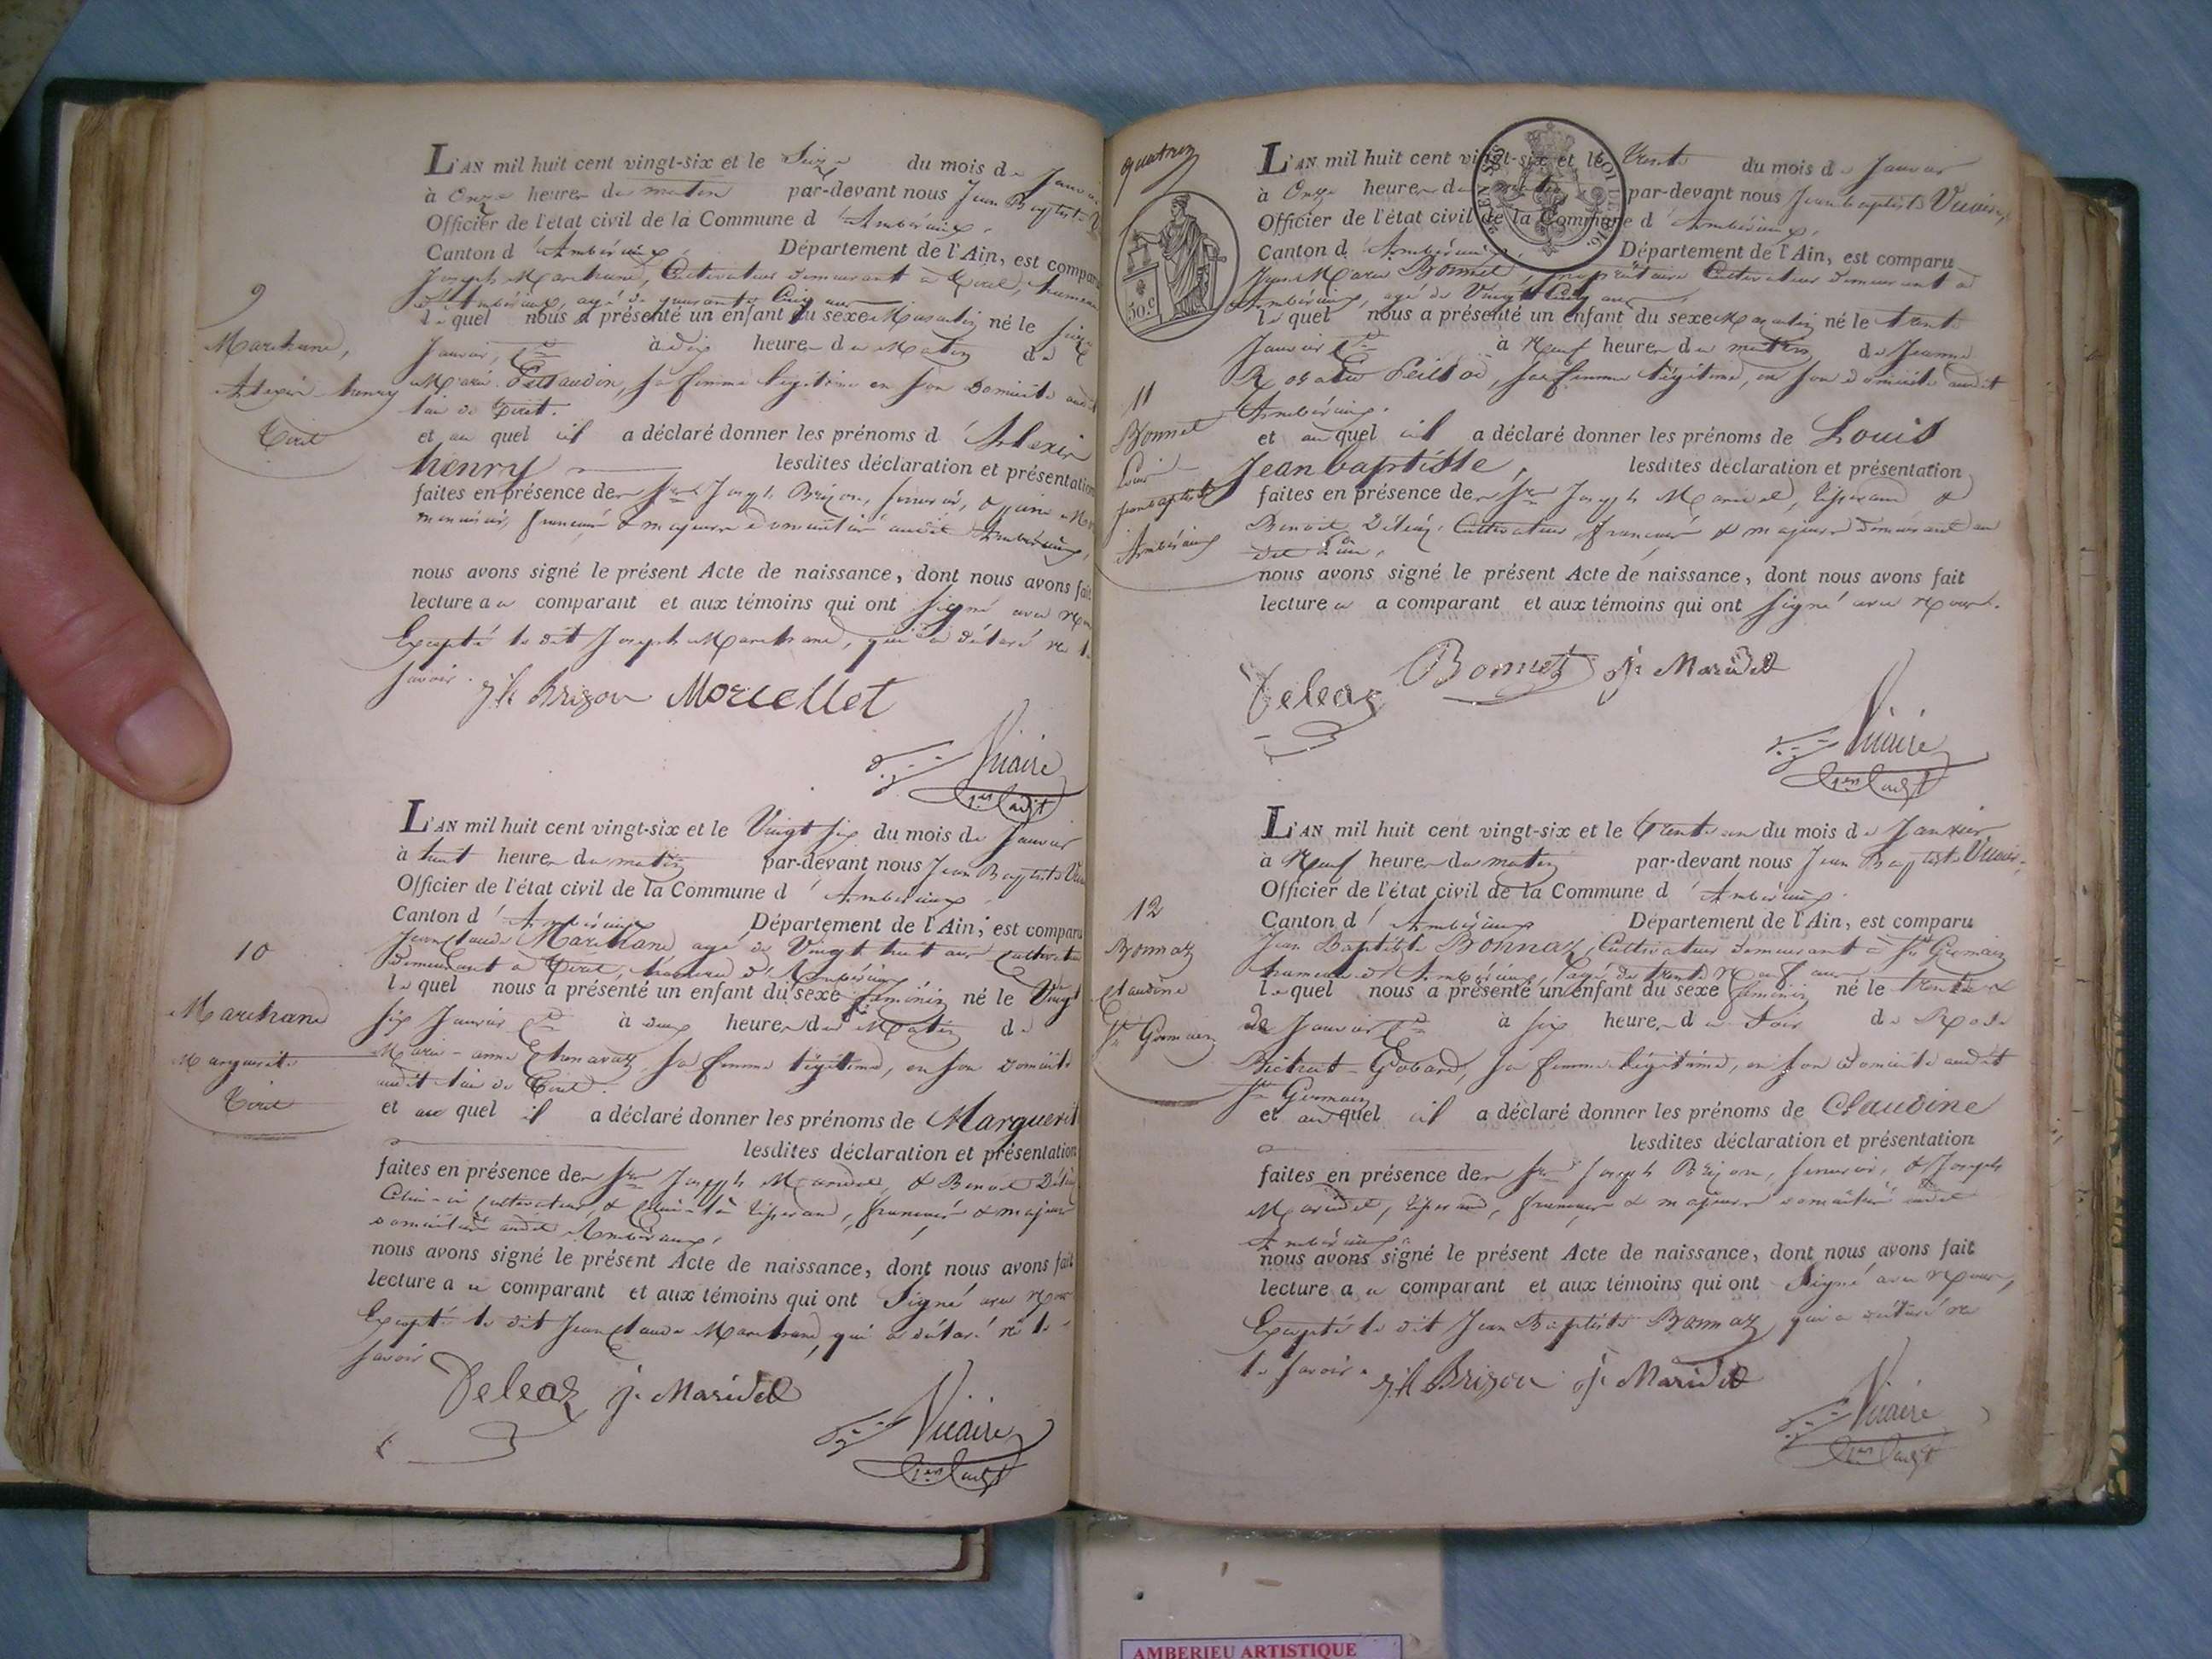 9
Marchand,
Alexis henry
Tiret
L'AN mil huit cent vingt-six et le Seize du mois de Janvier
à Onze heures du matin par-devant nous Jean Baptiste
Officier de l'état civil de la Commune d'Ambérieux,
Canton d'Ambérieux, Département de l'Ain, est comparu
Joseph Marchand, Cultivateur demeurant à Tiret, hameau
d'Ambérieux, agé de quarante cinq ans
lequel nous a présenté un enfant du sexe Masculin né le seize
Janvier, à dix heures du Matin de
Marie Pettaudin, sa femme légitime en son domicile audit
lieu de Tiret.
et au quel il a déclaré donner les prénoms d'Alexis
henry lesdites déclaration et présentation
faites en présence des Srs Joseph Brizon, serrurier,
menuisier, français & majeurs domiciliés audit Ambérieux,
nous avons signé le présent Acte de naissance, dont nous avons fait
lecture au comparant et aux témoins qui ont signé avec Nous
Excepté le dit Joseph Marchand, qui a déclaré ne le
savoir.
Jh Brizon Morcellet
Vicaire
10
Marchand
Marguerite
Tiret
L'AN mil huit cent vingt-six et le Vingt six du mois de Janvier
à huit heures du matin par-devant nous Jean Baptiste
Officier de l'état civil de la Commune d'Ambérieux,
Canton d'Ambérieux Département de l'Ain, est comparu
Jean Claude Marchand agé de Vingt huit ans Cultivateur
demeurant à Tiret, hameau d'Ambérieux
lequel nous a présenté un enfant du sexe féminin né le Vingt
six Janvier à deux heures du Matin de
Marie-anne Chenavaz sa femme légitime, en son domicile
audit lieu de Tiret.
et au quel il a déclaré donner les prénoms de Marguerite
lesdites déclaration et présentation
faites en présence des Srs Joseph Maridet, & Benoit Déléaz
Celui-ci Cultivateur, & celui-là tisserand, français & majeurs
domiciliés audit Ambérieux,
nous avons signé le présent Acte de naissance, dont nous avons fait
lecture au comparant et aux témoins qui ont Signé avec Nous
Excepté le dit Jean Claude Marchand, qui a déclaré ne le
savoir
Deleaz j. Maridet
Vicaire
50 c.
11
Bonnet
Louis
jean baptiste
Ambérieux
L'AN mil huit cent vingt-six et le trente du mois de Janvier
à Onze heures du matin par-devant nous Jean baptiste Vicaire,
Officier de l'état civil de la Commune d'Ambérieux,
Canton d'Ambérieux, Département de l'Ain, est comparu
Jean Marie Bonnet, propriétaire Cultivateur demeurant à
Ambérieux, agé de Vingt Cinq ans,
lequel nous a présenté un enfant du sexe Masculin né le trente
Janvier à Neuf heures du matin de Jeanne
Rosalie, sa femme légitime, en son domicile audit
Ambérieux.
et au quel il a déclaré donner les prénoms de Louis
Jean baptiste, lesdites déclaration et présentation
faites en présence des Srs Joseph Maridet, tisserand &
Benoit Déléaz, Cultivateur français & majeurs demeurant au
dit lieu,
nous avons signé le présent Acte de naissance, dont nous avons fait
lecture au comparant et aux témoins qui ont signé avec Nous.
Deleaz Bonnet j. Maridet
Vicaire
12
Bonnaz
Claudine
St Germain
L'AN mil huit cent vingt-six et le trente un du mois de Janvier
à Neuf heures du matin par-devant nous Jean Baptiste Vicaire,
Officier de l'état civil de la Commune d'Ambérieux.
Canton d'Ambérieux Département de l'Ain, est comparu
Jean Baptiste Bonnaz, Cultivateur demeurant à St Germain
hameau d'Ambérieux, agé de trente Neuf ans
lequel nous a présenté un enfant du sexe féminin né le trente
de Janvier à six heures du Soir de Rose
Bichat-Gobard, sa femme légitime, en son domicile audit
St Germain
et au quel il a déclaré donner les prénoms de Claudine
lesdites déclaration et présentation
faites en présence des Srs Joseph Brizon, serrurier, & Joseph
Maridet, tisserand, français & majeurs domiciliés audit
Ambérieux,
nous avons signé le présent Acte de naissance, dont nous avons fait
lecture au comparant et aux témoins qui ont Signé avec Nous,
Excepté le dit Jean Baptiste Bonnaz qui a déclaré ne
le savoir.
Jh Brizon j. Maridet
Vicaire
AMBERIEU ARTISTIQUE